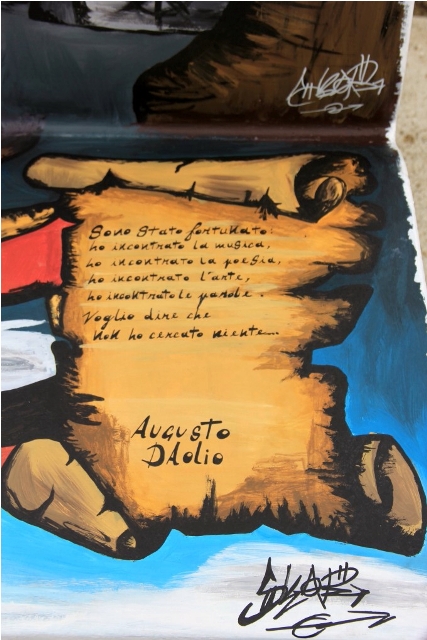 Sono stato fortunato:
ho incontrato la musica,
ho incontrato la poesia,
ho incontrato l'arte,
ho incontrato le parole.
Voglio dire che
non ho cercato niente...
Augusto
DAolio